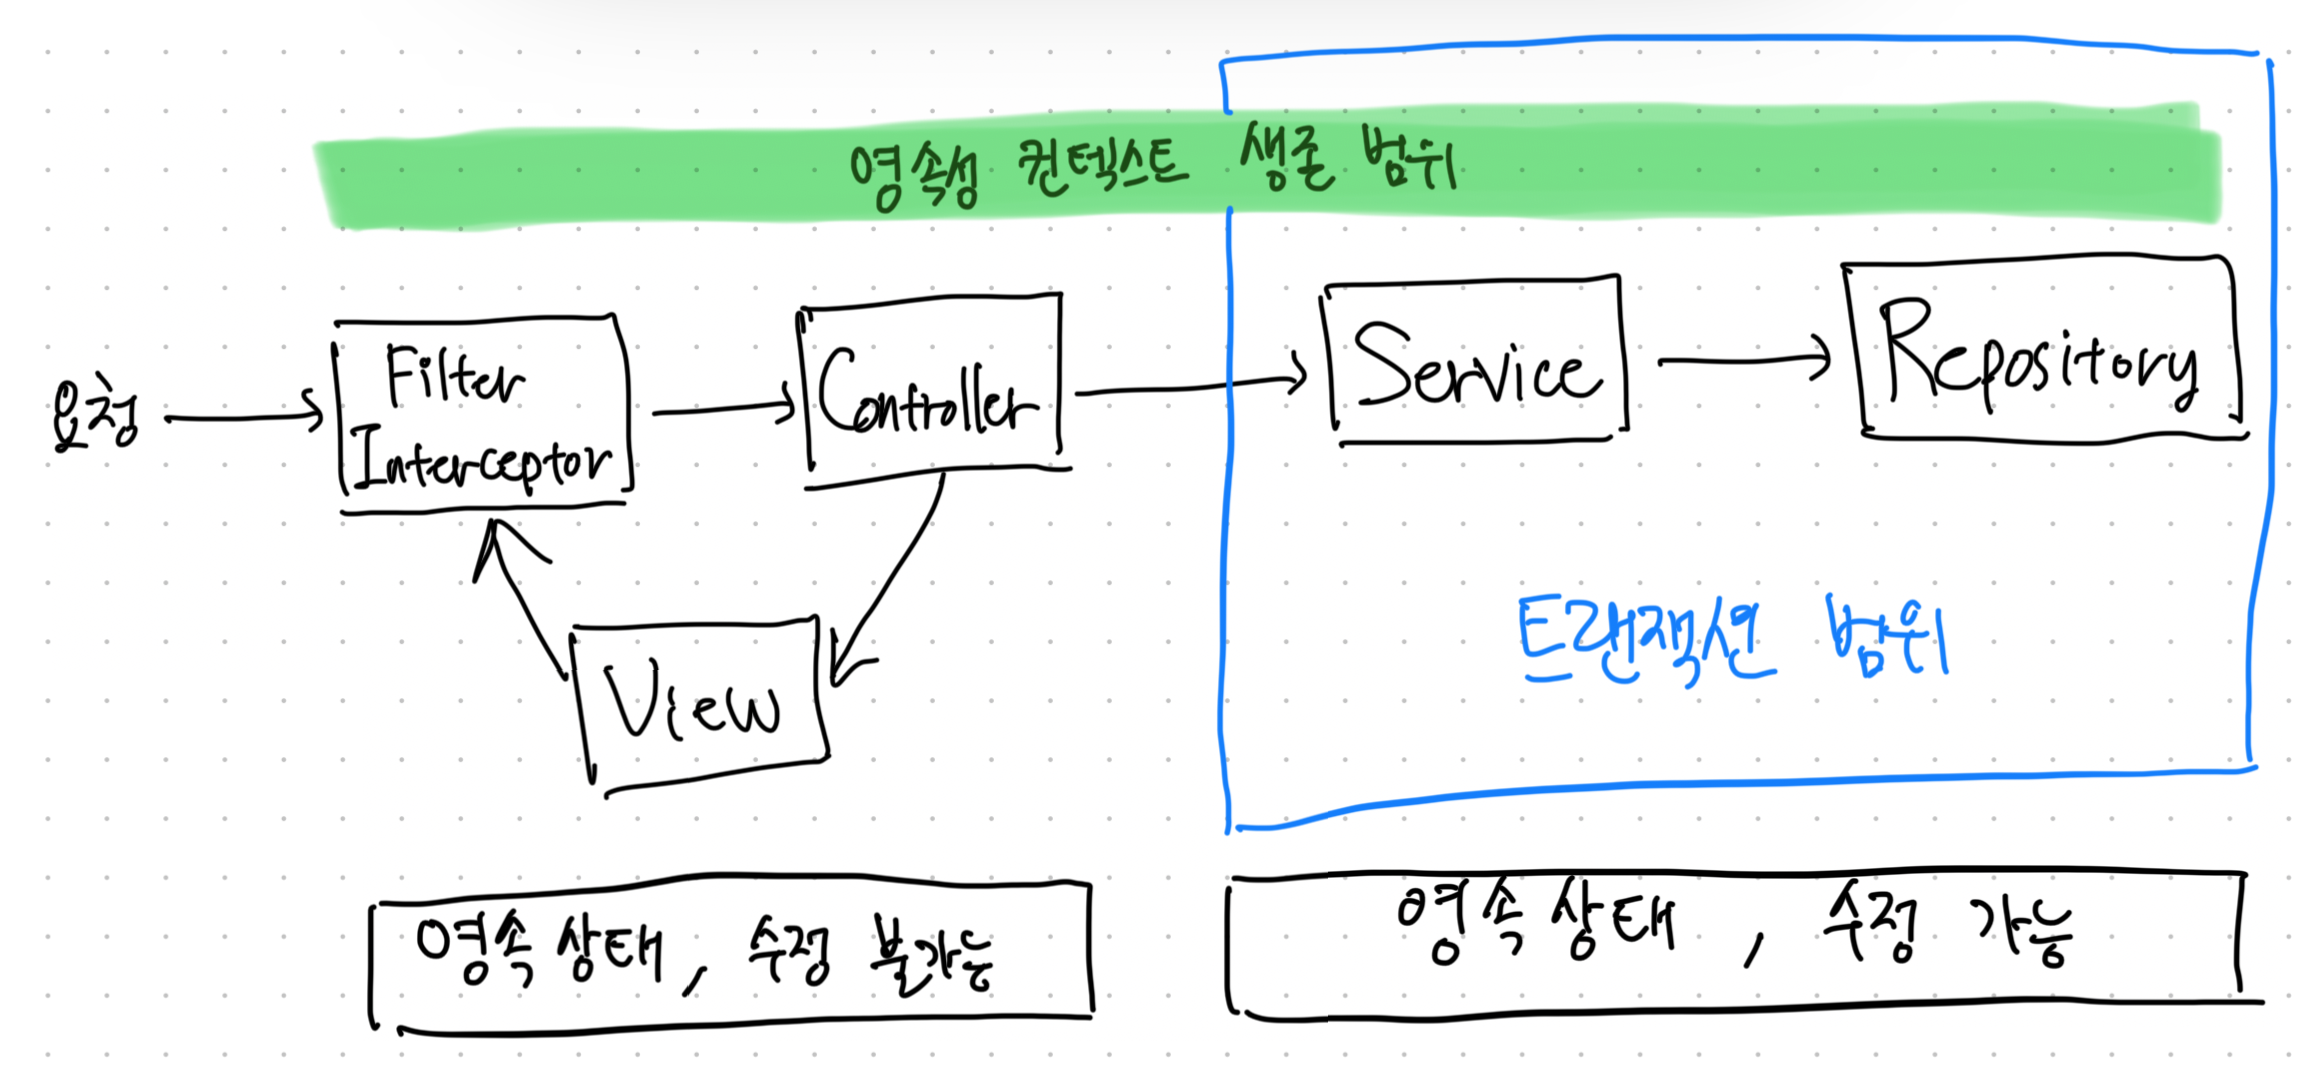 영속성 컨텍스트 생존 범위
요청
Filter
Interceptor
Controller
Service
Repository
View
트랜잭션 범위
영속 상태, 수정 불가능
영속 상태, 수정 가능